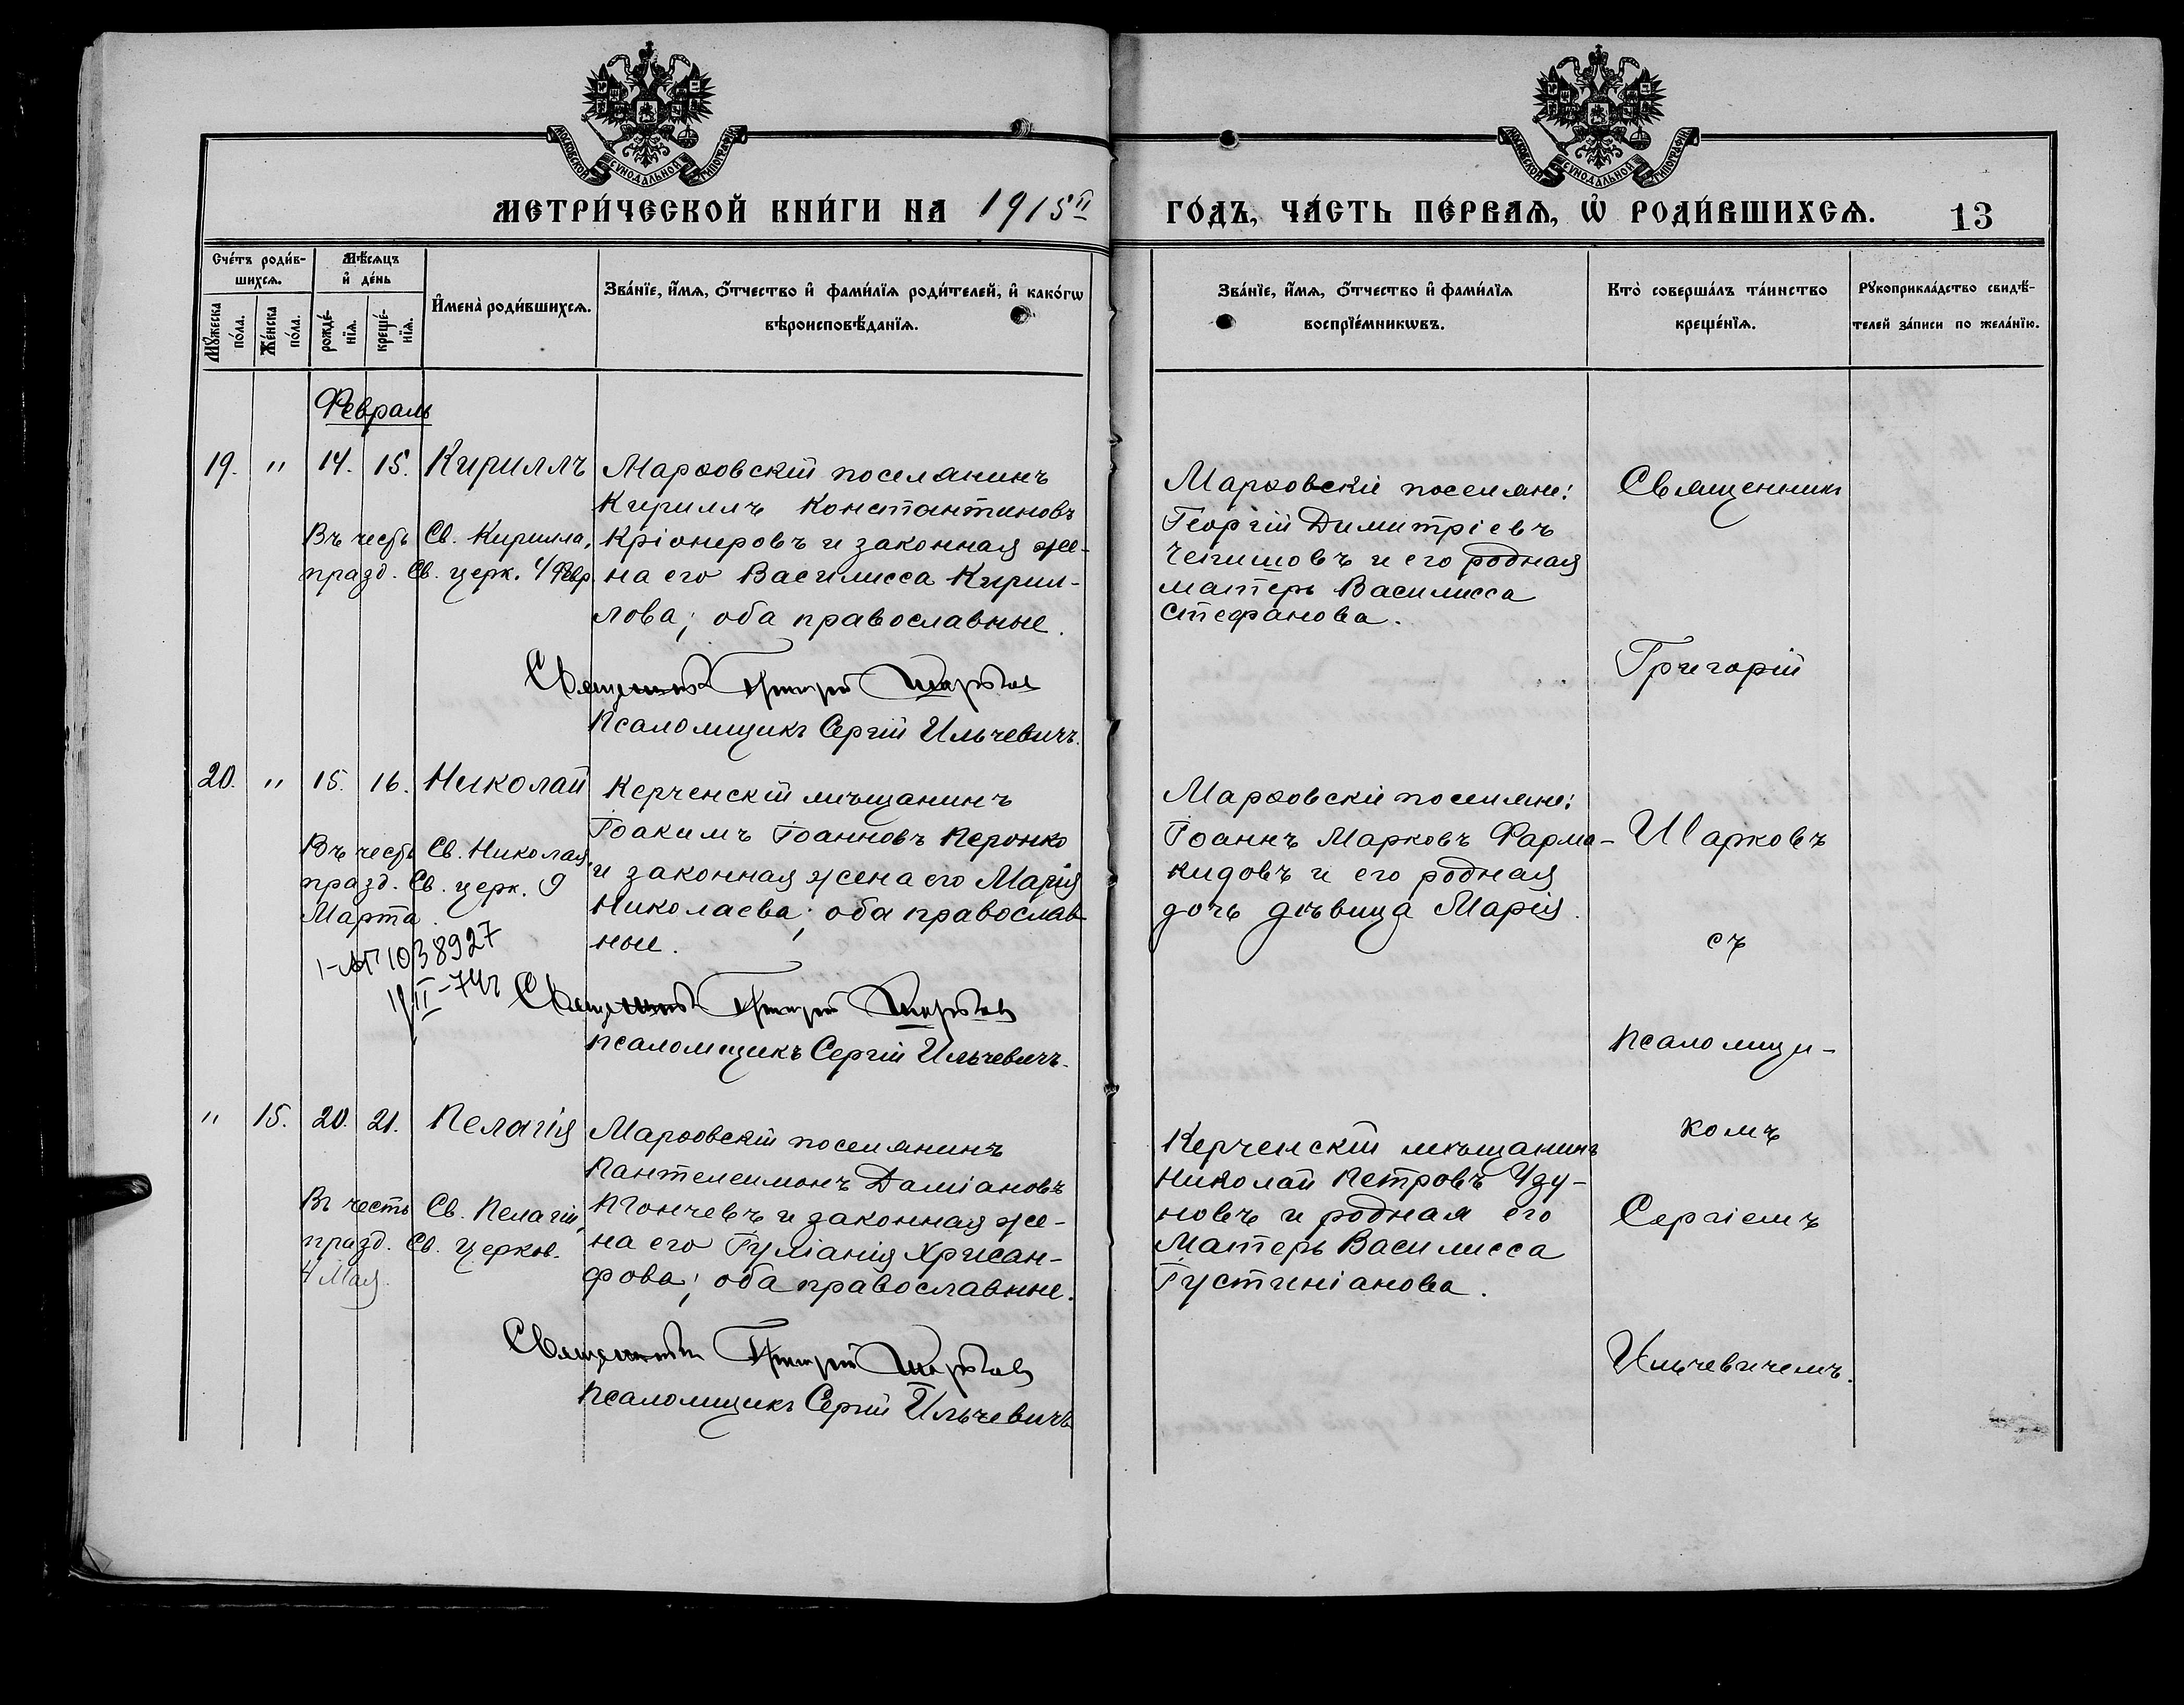 МОСКОВСКОЙ СѴНОДАЛЬНОЙ ТИПОГРАФІИ
МОСКОВСКОЙ СѴНОДАЛЬНОЙ ТИПОГРАФІИ
МЕТРИ́ЧЕСКОЙ КНИ́ГИ НА 1915й
ГО́ДЪ, ЧА́СТЬ ПЕ́РВАѦ, Ѽ РОДИ́ВШИХСѦ. 13
Сче́тъ роди́в-
шихсѧ.
Мꙋ́жеска по́ла.
Же́нска по́ла.
Мѣ́сѧцъ
и҆ де́нь
рожде́-
нїѧ.
креще́-
нїѧ.
И҆мена̀ роди́вшихсѧ.
Зва́нїе, и҆́мѧ, ѻ҆́тчество и҆ фами́лїѧ роди́телей, и҆ како́гѡ
вѣроисповѣ́данїѧ.
Зва́нїе, и҆́мѧ, ѻ҆́тчество и҆ фами́лїѧ
воспрїе́мникѡвъ.
Кто̀ соверша́лъ та́инство
креще́нїѧ.
Рꙋкоприкла́дство свидѣ́-
телей за́писи по жела́нїю.
Февраль
19. " 14. 15. Кириллъ
Въ честь Св. Кирилла,
празд. Св. церк. 4 Февр.
Марѳовскій поселянинъ
Кириллъ Константиновъ
Кріонеровъ и законная же-
на его Василисса Кирил-
лова; оба православные.
Священникъ Григорій Шарковъ
Псаломщикъ Сергій Ильчевичъ.
Марѳовскіе поселяне:
Георгій Димитріевъ
Чепишовъ и его родная
матерь Василисса
Стефанова.
Священникъ
Григорій
Шарковъ
съ
псаломщи-
комъ
Сергіемъ
Ильчевичемъ.
20. " 15. 16. Николай
Въ честь Св. Николая,
празд. Св. церк. 9
Марта.
1-АП 1038927
II-74г
Керченскій мѣщанинъ
Іоакимъ Іоанновъ Перонко
и законная жена его Марія
Николаева; оба православ-
ные.
Священникъ Григорій Шарковъ
Псаломщикъ Сергій Ильчевичъ.
Марѳовскіе поселяне:
Іоаннъ Марковъ Фарма-
кидовъ и его родная
дочь дѣвица Марія.
" 15. 20. 21. Пелагія
Въ честь Св. Пелагіи,
празд. Св. церков.
4 Мая.
Марѳовскій поселянинъ
Пантелеимонъ Даміановъ
Пгончевъ и законная же-
на его Іуліанія Хрисан-
фова; оба православные.
Священникъ Григорій Шарковъ
Псаломщикъ Сергій Ильчевичъ
Керченскій мѣщанинъ
Николай Петровъ Узу-
новъ и родная его
матерь Василисса
Іустиніанова.